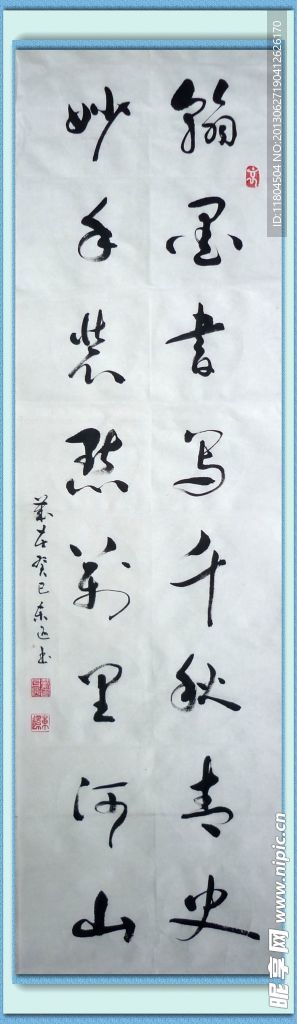 翰墨書写千秋青史
妙手装點萬里河山
歲在癸巳
ID:11804504 NO:20130627190412626170
昵享网 www.nipic.cn